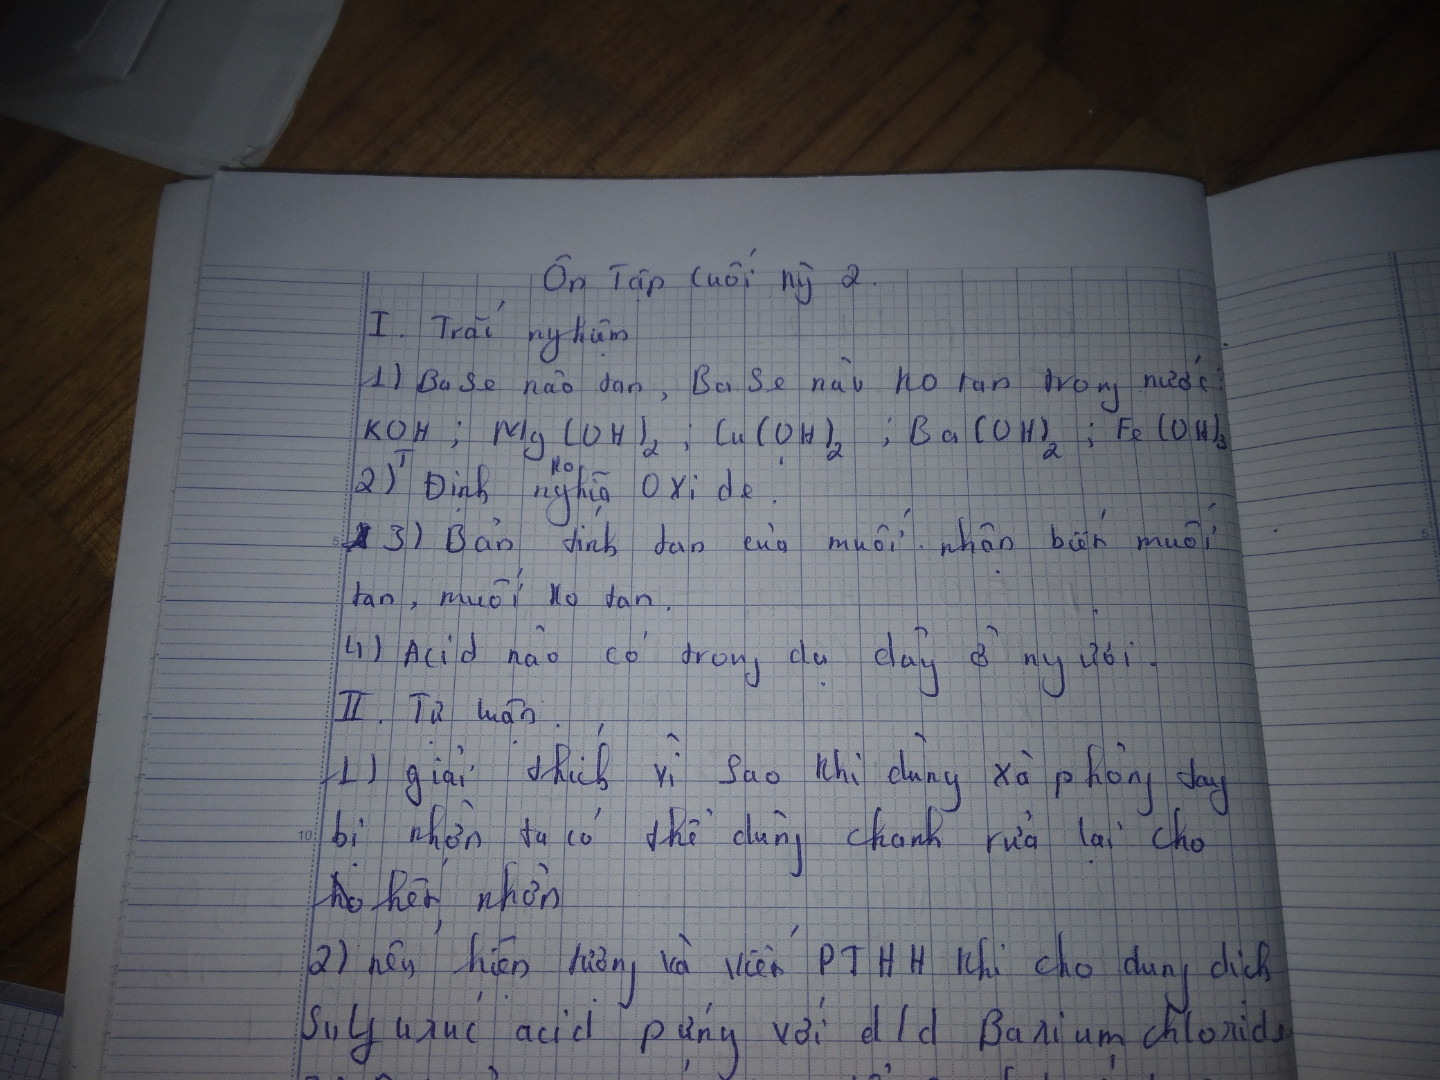 Ôn Tập Cuối kỳ 2.
I. Trắc nghiệm
1) Base nào tan, Base nào ko tan trong nước:
KOH ; Mg(OH)₂ ; Cu(OH)₂ ; Ba(OH)₂ ; Fe(OH)₃
2) Định nghĩa Oxide.
3) Bản tính tan của muối. nhận biết muối
tan, muối ko tan.
4) Acid nào có trong dạ dày ở người.
II. Tự luận.
1) giải thích vì sao khi dùng xà phòng tay
bị nhờn ta có thể dùng chanh rửa lại cho
hết nhờn
2) nêu hiện tượng và viết PTHH khi cho dung dịch
Sulfuric acid pứng với d/d Barium chloride